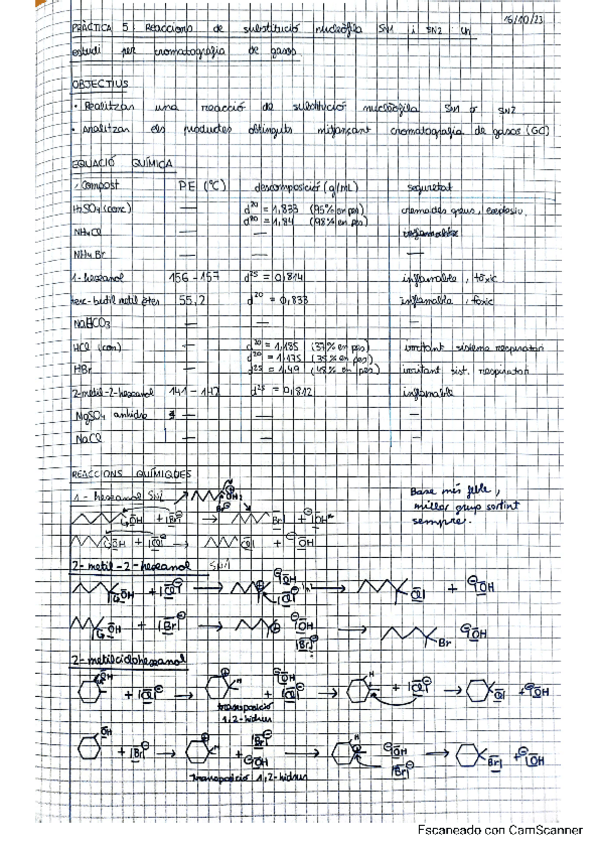 16/10/23
PRÀCTICA 5: Reaccions de substitució nucleòfila SN1 i SN2: un
estudi per cromatografia de gasos
OBJECTIUS
· Realitzar una reacció de substitució nucleòfila SN1 o SN2
· Analitzar els productes obtinguts mitjançant cromatografia de gasos (GC)
EQUACIÓ QUÍMICA
Compost PE (°C) descomposició (g/mL) seguretat
H₂SO₄ (conc) — d²⁰ = 1,833 (95% en pes) cremades greus, explosiu
d²⁰ = 1,84 (98% en pes)
NH₄Cl — — inflamable
NH₄Br — — —
1-hexanol 156 - 157 d²⁵ = 0,814 inflamable, tòxic
terc-butil metil èter 55,2 d²⁰ = 0,833 inflamable, tòxic
NaHCO₃ — — —
HCl (con) — d²⁰ = 1,185 (37% en pes) irritant sistema respiratori
d²⁰ = 1,175 (35% en pes)
HBr — d²⁵ = 1,49 (48% en pes) irritant sist. respiratori
2-metil-2-hexanol 141 - 142 d²⁵ = 0,812 inflamable
MgSO₄ anhidre — — —
NaCl — — —
REACCIONS QUÍMIQUES
1 - hexanol SN2
Base més feble,
millor grup sortint
sempre.
OH + |Br| → Br| + |OH
OH + |Cl| → Cl| + OH
2-metil-2-hexanol SN1
OH + |Cl| → OH |Cl| → Cl| + OH
OH + |Br| → OH |Br| → Br OH
2-metilciclohexanol
OH + |Cl| → H OH + |Cl| → H + |Cl| → Cl + OH
transposició
1,2-hidrur
OH + |Br| → H |Br| + OH → H OH |Br| → Br| + OH
Transposició 1,2-hidrur
Escaneado con CamScanner